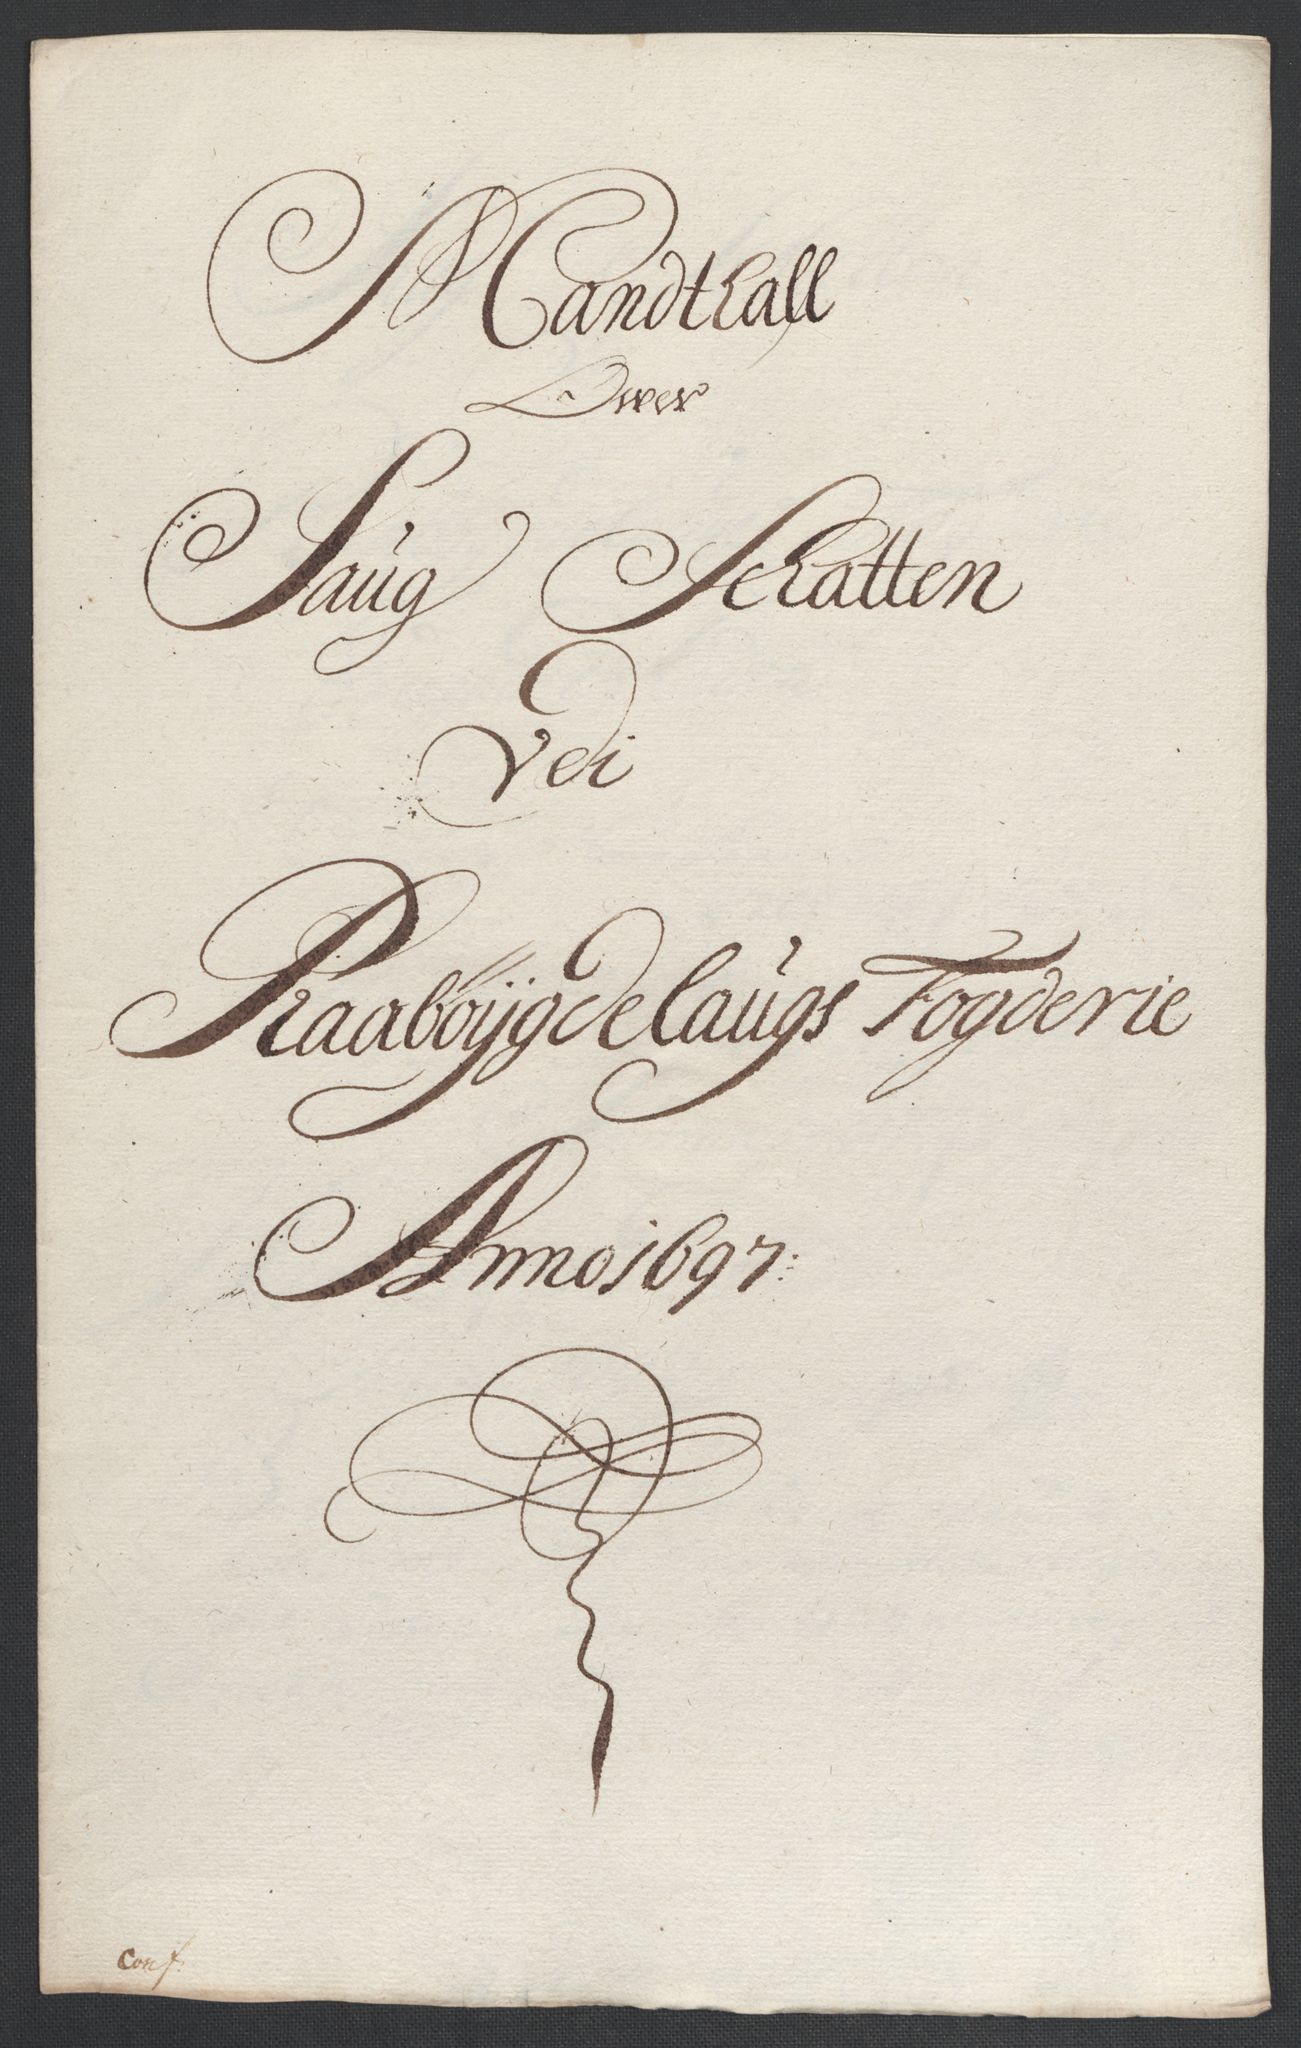 Mandtall
Ower
Saug Schatten
Udi
Raabÿgdelaugs Fogderie
Anno 1697:
Conf: